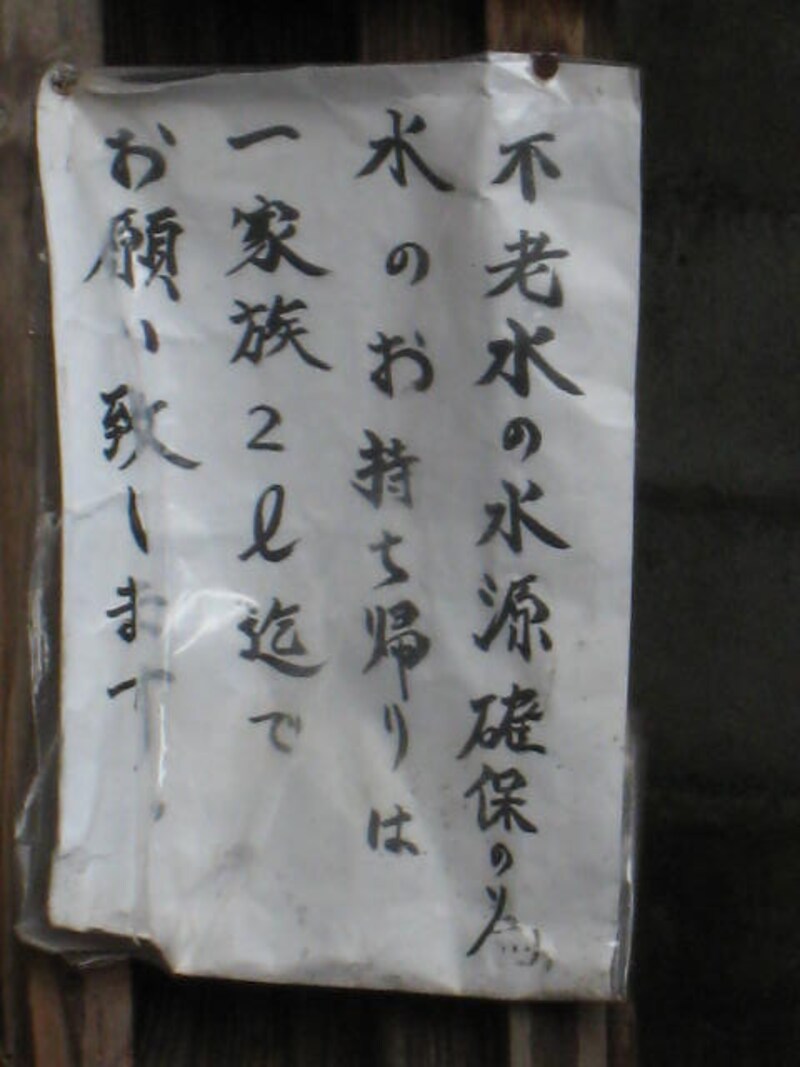 不老水の水源確保の為
水のお持ち帰りは
一家族2ℓ迄で
お願い致します